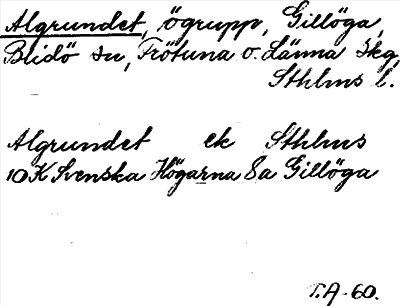 Algrundet, ögrupp, Gillöga,
Blidö sn, Frötuna o. Länna skg,
Sthlms l.
Algrundet ek Sthlms
10K Svenska Högarna 8a Gillöga
T.A-60.